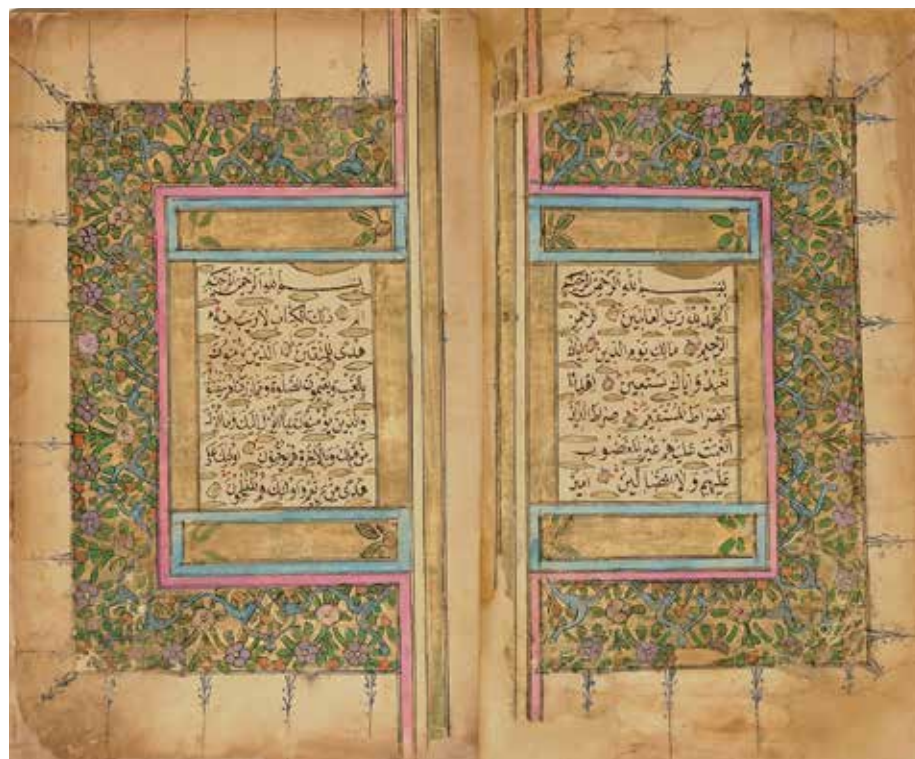 بسم الله الرحمن الرحيم
الحمد لله رب العالمين الرحمن
الرحيم مالك يوم الدين اياك
نعبد واياك نستعين اهدنا
الصراط المستقيم صراط الذين
انعمت عليهم غير المغضوب
عليهم ولا الضالين امين
بسم الله الرحمن الرحيم
الم ذلك الكتاب لا ريب فيه
هدى للمتقين الذين يؤمنون
بالغيب ويقيمون الصلوة ومما
والذين يؤمنون بما انزل اليك وما انزل
من قبلك وبالاخرة هم يوقنون اولئك على
هدى من ربهم واولئك هم المفلحون